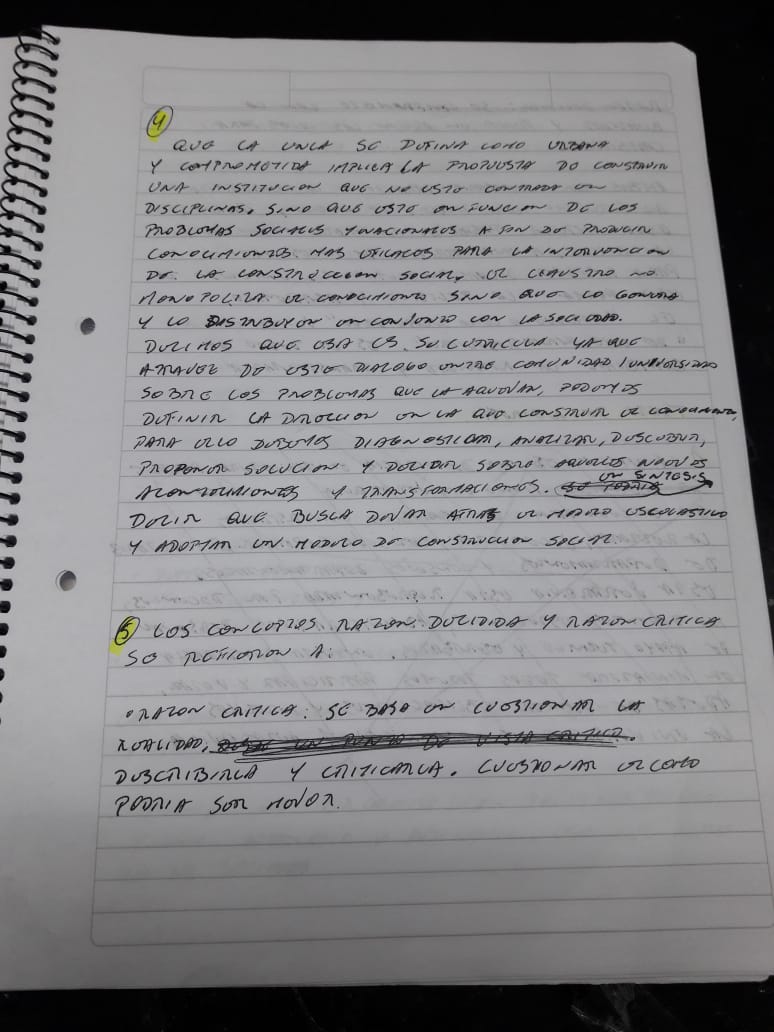 4
QUE LA UNLA SE DEFINA COMO URBANA
Y COMPROMETIDA IMPLICA LA PROPUESTA DE CONSTRUIR
UNA INSTITUCION QUE NO ESTE CENTRADA EN
DISCIPLINAS, SINO QUE ESTE EN FUNCION DE LOS
PROBLEMAS SOCIALES Y NACIONALES A FIN DE PRODUCIR
CONOCIMIENTOS MAS EFICACES PARA LA INTERVENCION
DE LA CONSTRUCCION SOCIAL, EL CLAUSTRO NO
MONOPOLIZA EL CONOCIMIENTO SINO QUE LO GENERA
Y LO DISTRIBUYEN EN CONJUNTO CON LA SOCIEDAD.
DECIMOS QUE ESA ES SU CURRICULA YA QUE
ATRAVEZ DE ESTE DIALOGO ENTRE COMUNIDAD / UNIVERSIDAD
SOBRE LOS PROBLEMAS QUE LA AQUEJAN, PODEMOS
DEFINIR LA DIRECCION EN LA QUE CONSTRUIR EL CONOCIMIENTO,
PARA ELLO DEBEMOS DIAGNOSTICAR, ANALIZAR, DESCUBRIR,
PROPONER SOLUCION Y DECIDIR SOBRE AQUELLOS NUEVOS
ACONTECIMIENTOS Y TRANSFORMACIONES. SE PODRIA EN SINTESIS
DECIR QUE BUSCA DEJAR ATRAS EL MODELO ESCOLASTICO
Y ADOPTAR UN MODELO DE CONSTRUCCION SOCIAL
5 LOS CONCEPTOS RAZON DECIDIDA Y RAZON CRITICA
SE REFIEREN A:
• RAZON CRITICA: SE BASA EN CUESTIONAR LA
REALIDAD. DESDE UN PUNTO DE VISTA CRITICO.
DESCRIBIRLA Y CRITICARLA. CUESTIONAR EL COMO
PODRIA SER MEJOR.